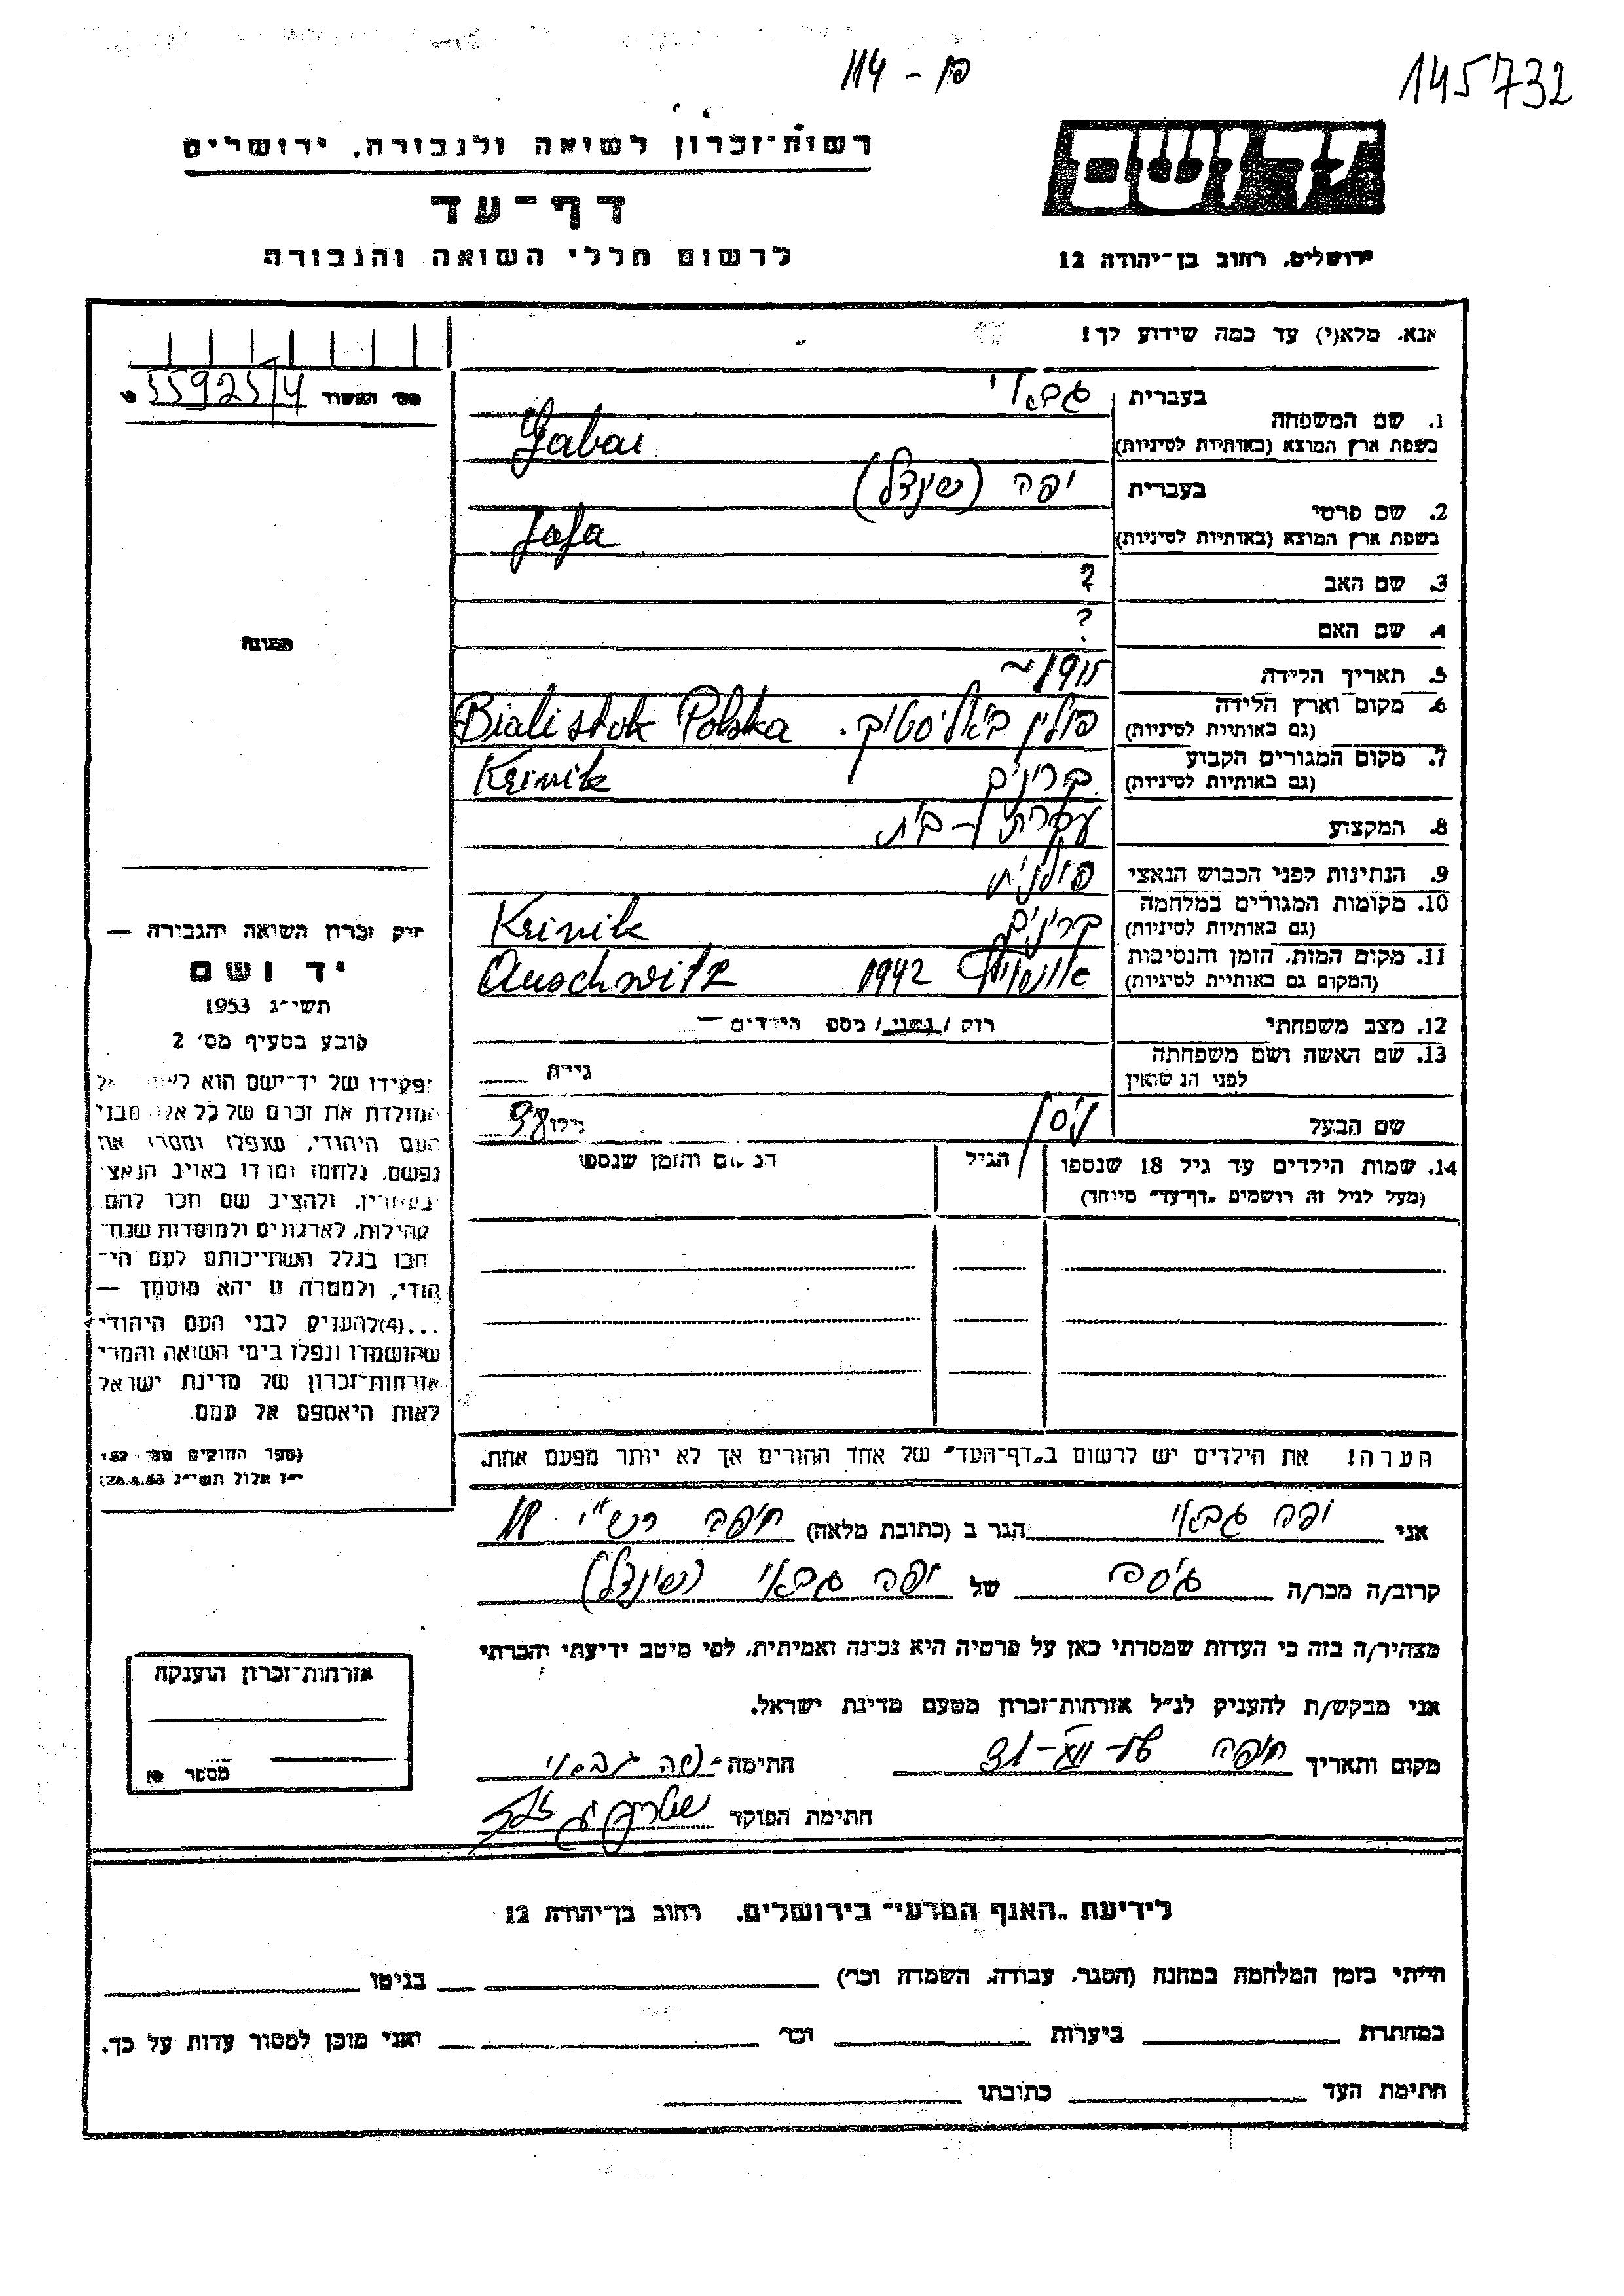 145732
114 - פ
יד ושם
רשות-זכרון לשואה ולגבורה, ירושלים
דף-עד
לרשום חללי השואה והגבורה
ירושלים, רחוב בן-יהודה 12
אנא, מלא(י) עד כמה שידוע לך!
מס' האשור 55925/4
בעברית גבאי
1. שם המשפחה
בשפת ארץ המוצא (באותיות לטיניות) Gabai
בעברית יפה (שינדל)
2. שם פרטי
בשפת ארץ המוצא (באותיות לטיניות) Jafa
3. שם האב ?
4. שם האם ?
תמונה
5. תאריך הלידה 1915~
6. מקום וארץ הלידה
(גם באותיות לטיניות) פולין ביאליסטוק. Bialistok Polska
7. מקום המגורים הקבוע
(גם באותיות לטיניות) קריניק Krinik
8. המקצוע עקרת-בית
9. הנתינות לפני הכבוש הנאצי פולנית
10. מקומות המגורים במלחמה
(גם באותיות לטיניות) קריניק Krinik
11. מקום המות, הזמן והנסיבות
(המקום גם באותיות לטיניות) אושוויץ 1942 Auschwitz
12. מצב משפחתי רווק / נשוי / מספר הילדים —
13. שם האשה ושם משפחתה
לפני הנשואין גילה
שם הבעל ניסן גילו 38
14. שמות הילדים עד גיל 18 שנספו הגיל המקום והזמן שנספו
(מעל לגיל זה רושמים "דף-עד" מיוחד)
חוק זכרון השואה והגבורה —
יד ושם
תשי"ג 1953
קובע בסעיף מס' 2
תפקידו של יד-ושם הוא לאסוף אל
המולדת את זכרם של כל אלה מבני
העם היהודי, שנפלו ומסרו את
נפשם, נלחמו ומרדו באויב הנאצי
ובעוזריו, ולהציב שם וזכר להם
לקהילות, לארגונים ולמוסדות שנח-
רבו בגלל השתייכותם לעם הי-
הודי, ולמטרה זו יהא מוסמך —
...(4) להעניק לבני העם היהודי
שהושמדו ונפלו בימי השואה והמרי
אזרחות-זכרון של מדינת ישראל
לאות היאספם אל עמם.
(ספר החוקים מס' 132
י"ז אלול תשי"ג 28.8.53)
הערה! את הילדים יש לרשום ב"דף-העד" של אחד ההורים אך לא יותר מפעם אחת.
אני יפה גבאי הגר ב (כתובת מלאה) חיפה רש"י
קרוב/ה מכר/ה גיסה של יפה גבאי (שינדל)
מצהיר/ה בזה כי העדות שמסרתי כאן על פרטיה היא נכונה ואמיתית, לפי מיטב ידיעתי והכרתי
אני מבקש/ת להעניק לנ"ל אזרחות-זכרון מטעם מדינת ישראל.
מקום ותאריך חיפה חתימה יפה גבאי
חתימת הפוקד
אזרחות-זכרון הוענקה
מספר
לידיעת "האגף המדעי" בירושלים, רחוב בן-יהודה 12
הייתי בזמן המלחמה במחנה (הסגר, עבודה, השמדה וכו') בגיטו
במחתרת ביערות וכו' ואני מוכן למסור עדות על כך.
חתימת העד כתובתו